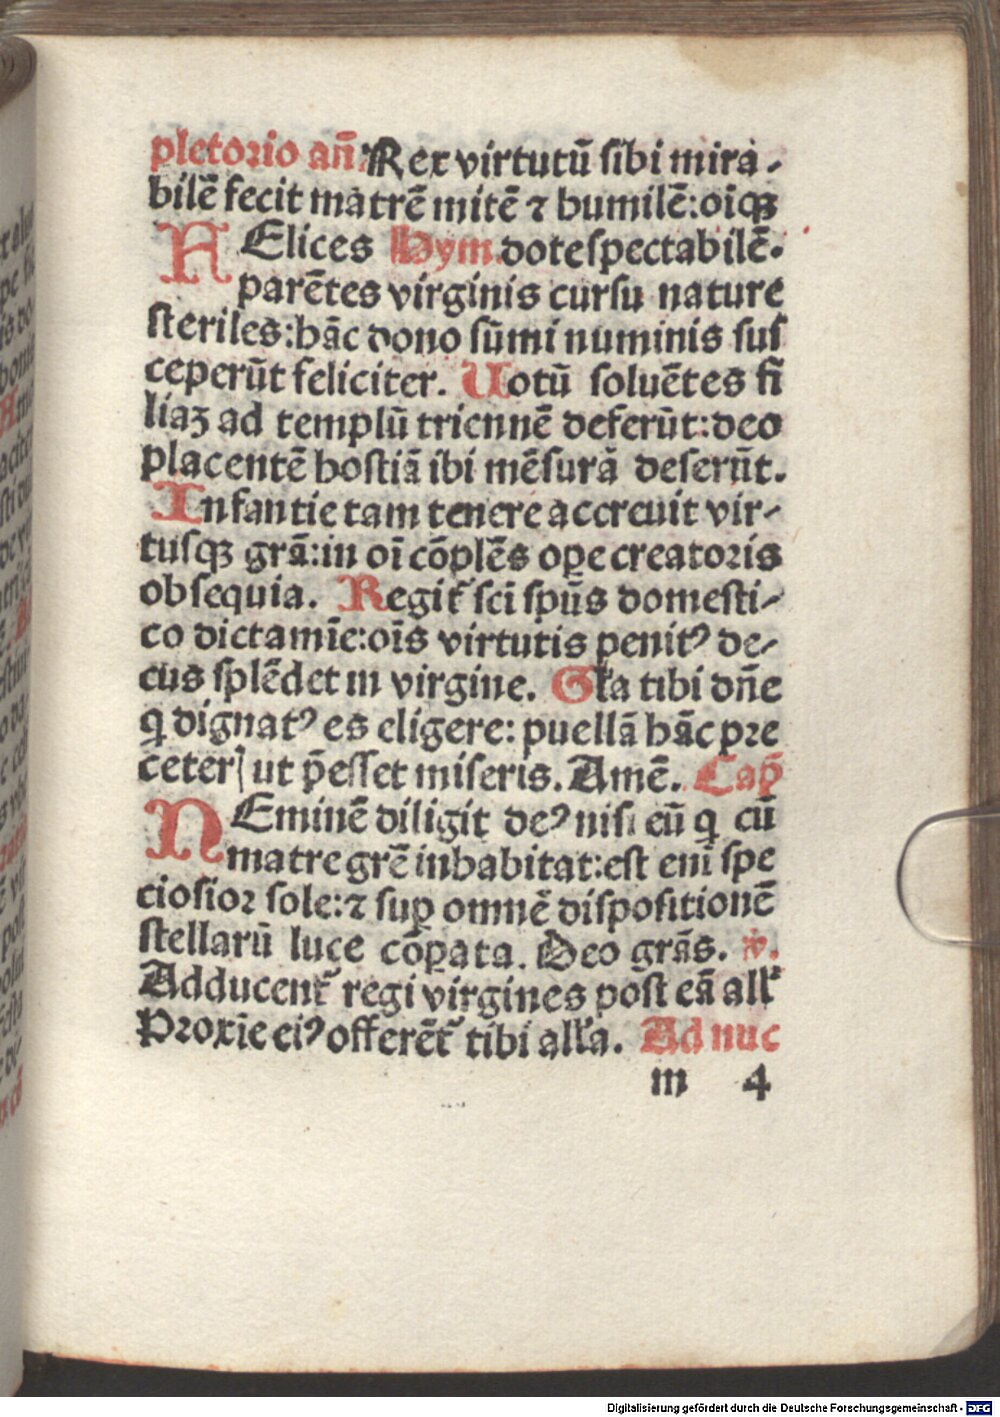 pletorio añ: Rex virtutū sibi mira-
bilē fecit matrē mitē ⁊ humilē: oīqꝫ
AElices Hym. dote spectabilē.
parētes virginis cursu nature
steriles: hāc dono sūmi numinis sus
ceperūt feliciter. Uotū soluētes fi
liaꝫ ad templū triennē deferūt: deo
placentē hostiā ibi mēsurā deserūt.
Infantie tam tenere accreuit vir-
tusqꝫ grā: in oī cōplēs ope creatoris
obsequia. Regit᷑ sci spūs domesti-
co dictamīe: oīs virtutis penitꝰ de-
cus splēdet in virgine. Gl'a tibi dñe
q dignatꝰ es eligere: puellā hāc pre
ceter] ut p̄esset miseris. Amē. Cap̄
NEminē diligit deꝰ nisi eū q cū
matre grē inhabitat: est eni spe
ciosior sole: ⁊ sup omnē dispositionē
stellarū luce cōpata. Deo grās. v̄.
Adducent᷑ regi virgines post eā all'
Proxīe eiꝰ offerēt᷑ tibi all'a. Ad nuc
m 4
Digitalisierung gefördert durch die Deutsche Forschungsgemeinschaft - DFG